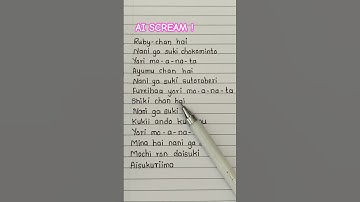 AI SCREAM !
Ruby-chan hai
Nani ga suki chokominto
Yori mo-a-na-ta
Ayumu chan hai
Nani ga suki sutoroberi
Fureibaa yori mo-a-na-ta
Shiki chan hai
Nani ga suki
Kukii ando
Yori mo-a-
Mina hai nani ga
Mochi ron daisuki
Aisukuriimo